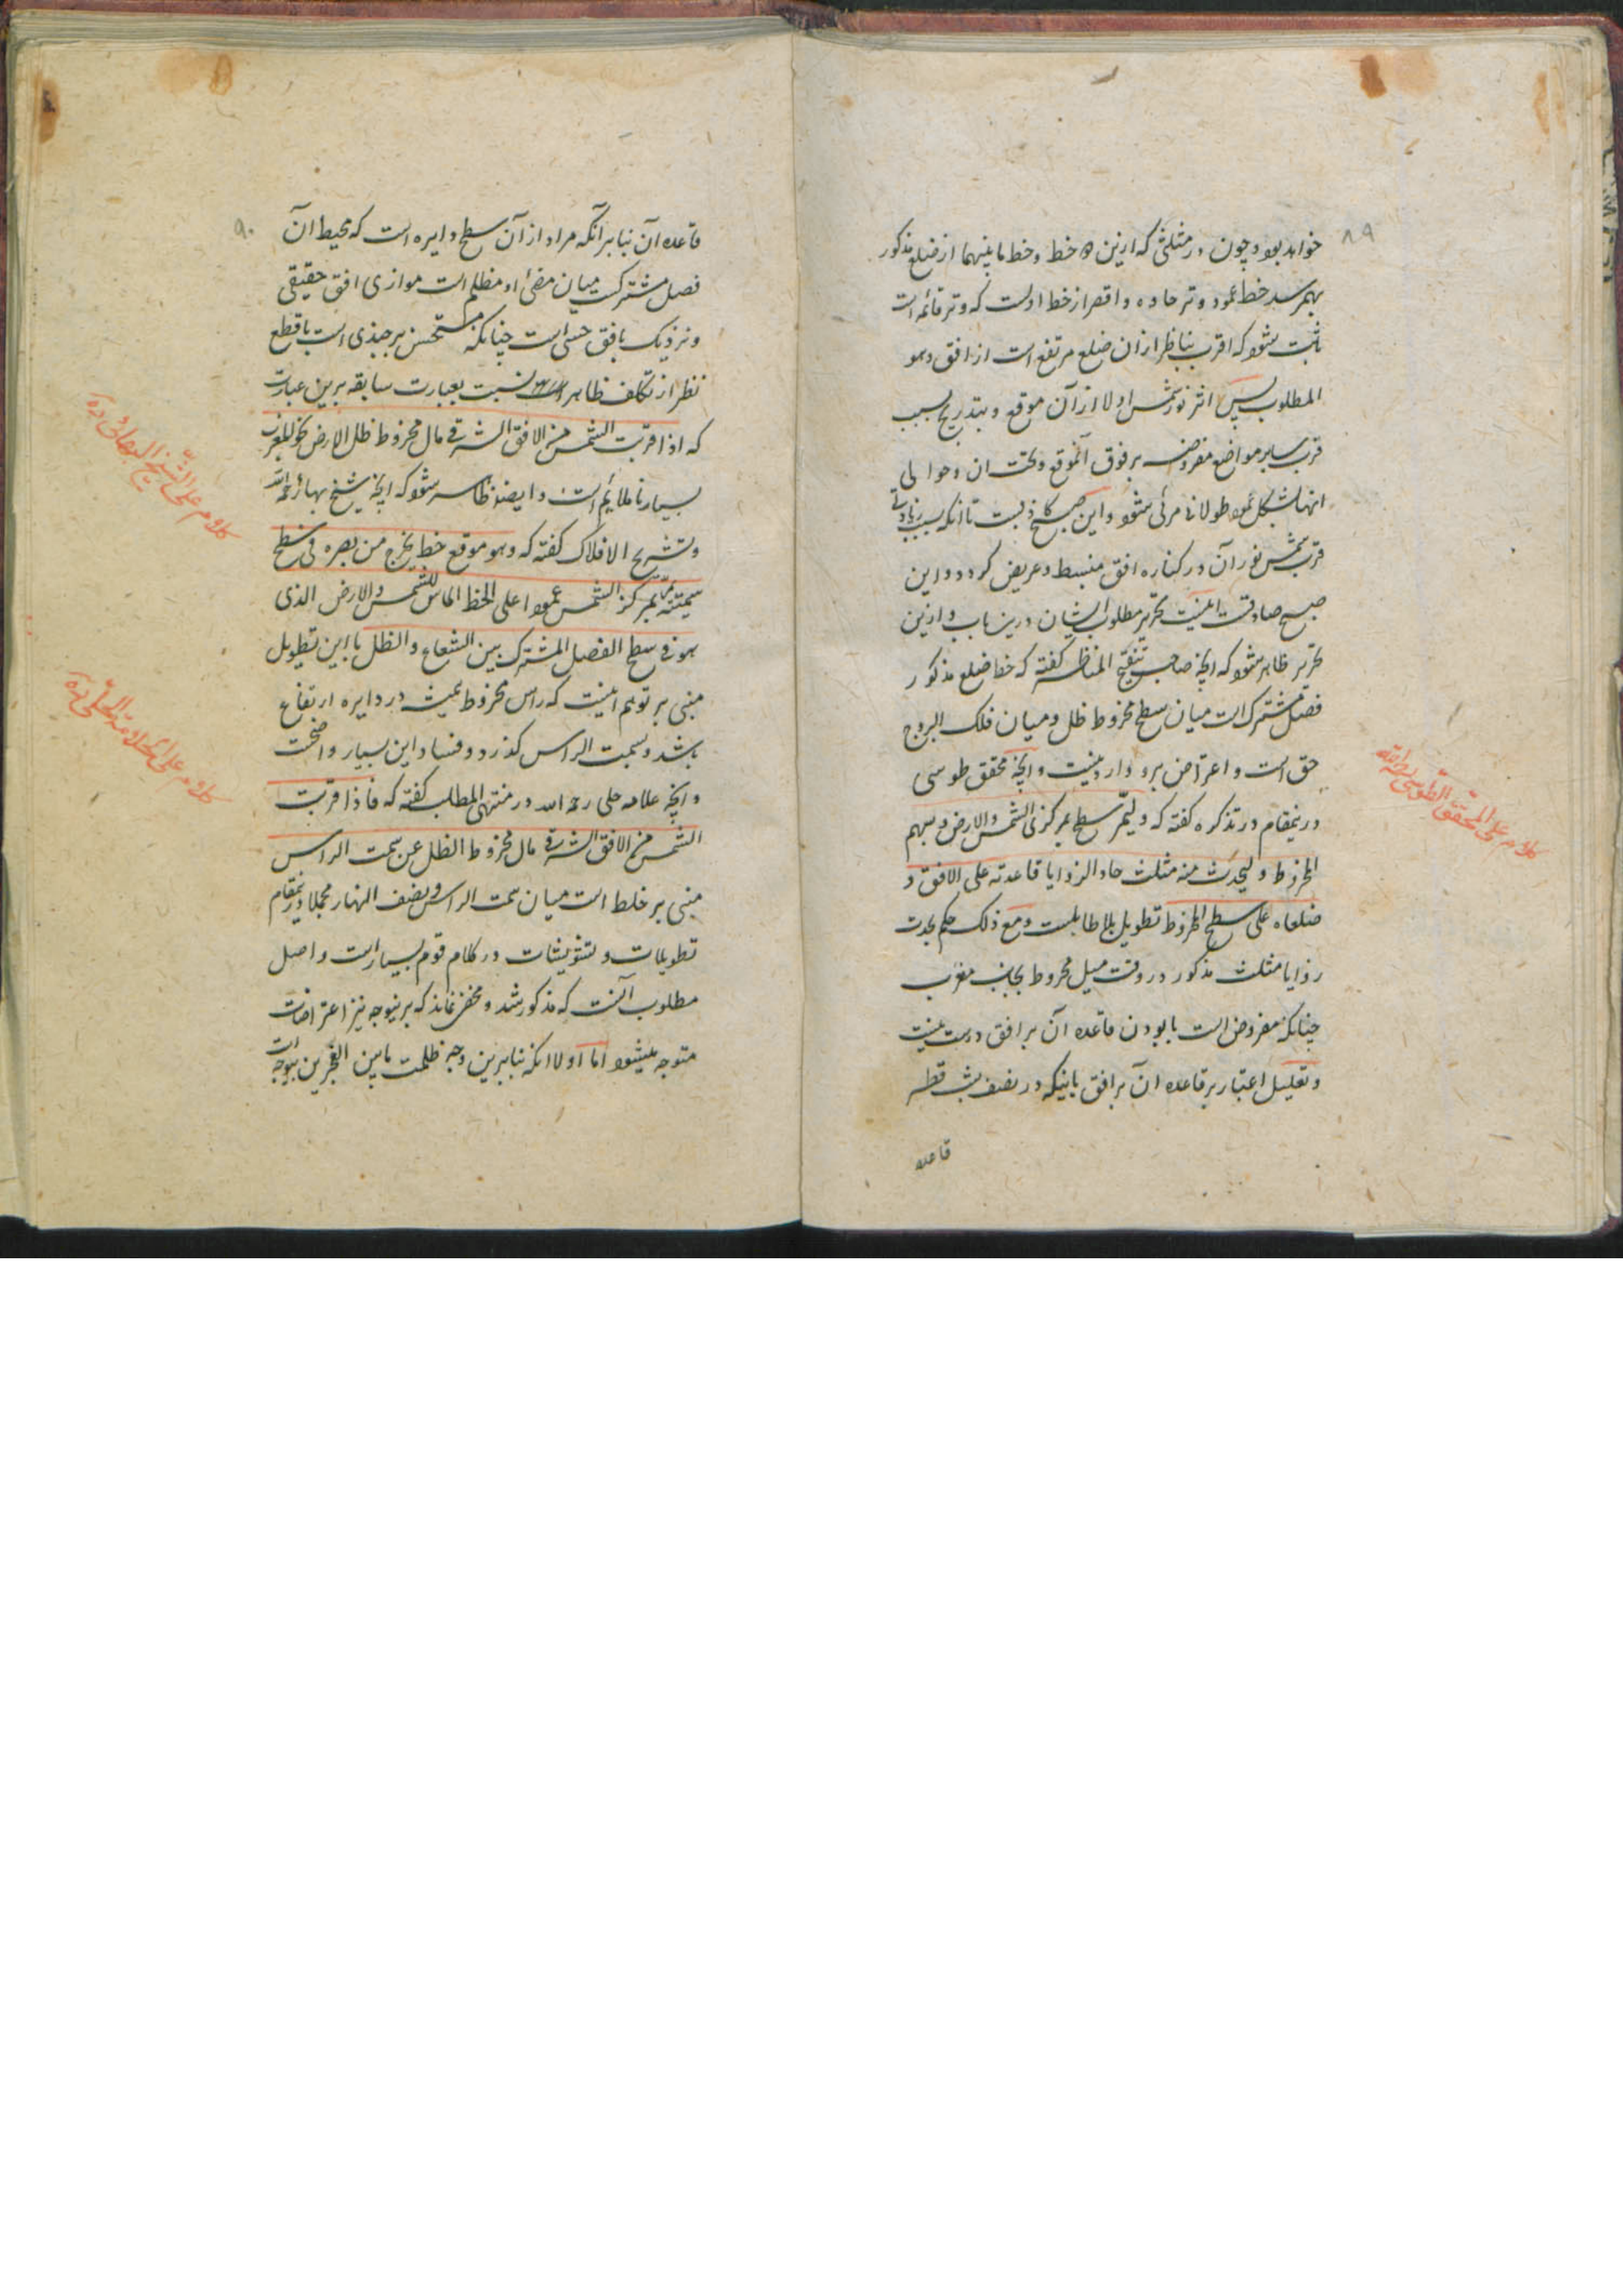 ۸۹
خواهد بود و چون در مثلثی که ازین دو خط و خط ما بینهما از ضلع مذکور
بهمرسد خط عمود وتر حاده و اقصر از خط اولست که وتر قائمه است
ثابت شود که اقرب بناظر از ان ضلع مرتفع است از افق و هو
المطلوب پس اثر نور شمس اولا از آن موقع و بتدریج بسبب
قرب سایر مواضع مفروضه بر فوق آنموقع و تحت ان و حوالی
انها بشکل عمود طولانی مرئی شود و این صبح کاذبست تا انکه بسبب زیادتی
قرب شمس نور آن در کناره افق منبسط و عریض گردد و این
صبح صادقست اینست تحریر مطلوب ایشان درین باب و ازین
تحریر ظاهر شود که آنچه صاحب تنقیح المناظر گفته که خط ضلع مذکور
فصل مشترک است میان سطح مخروط ظل و میان فلک البروج
حق است و اعتراض برو وارد نیست و آنچه محقق طوسی
درینمقام در تذکره گفته که و لیمر سطح بمرکزی الشمس و الارض و بسهم
المخروط و لیحدث منه مثلث حاد الزوایا قاعدته علی الافق و
ضلعاه علی سطح المخروط تطویل بلا طایلست و مع ذلک حکم بحدت
زوایا مثلث مذکور در وقت میل مخروط بجانب مغرب
چنانکه مفروض است با بودن قاعده آن بر افق درست نیست
و تعلیل اعتبار بر قاعده ان بر افق باینکه در نصف شب قطر
قاعده
کلام علی المحقق الطوسی
۹۰
قاعده آن بنا بر آنکه مراد از آن سطح دایره است که محیط آن
فصل مشترکست میان مضئ او مظلم است موازی افق حقیقی
و نزدیک بافق حسی است چنانکه مستحسن برجندی است با قطع
نظر از تکلف ظاهر است نسبت بعبارت سابقه برین عبارت
که اذا قربت الشمس من الافق الشرقی مال مخروط ظل الارض نحو المغرب
بسیار ناملایم است و ایضا ظاهر شود که آنچه شیخ بهائی رحمه الله
در تشریح الافلاک گفته که و هو موقع خط یخرج من بصره فی سطح
سمیته یمر بمرکز الشمس عمودا علی الخط المماس للشمس و الارض الذی
هو فی سطح الفصل المشترک بین الشعاع و الظل با این تطویل
مبنی بر توهم اینست که راس مخروط همیشه در دایره ارتفاع
باشد و بسمت الراس گذرد و فساد این بسیار واضحست
و آنچه علامه حلی رحمه الله در منتهی المطلب گفته که فاذا قربت
الشمس من الافق الشرقی مال مخروط الظل عن سمت الراس
مبنی بر خلط است میان سمت الراس و نصف النهار مجملا درینمقام
تطویلات و تشویشات در کلام قوم بسیار است و اصل
مطلوب آنست که مذکور شد و مخفی نماند که برینوجه نیز اعتراضات
متوجه میشود اما اولا انکه بنا برین وجه ظلمت مابین الفجرین بیوجه است
کلام علی الشیخ البهائی ره
کلام علی العلامة الحلی ره